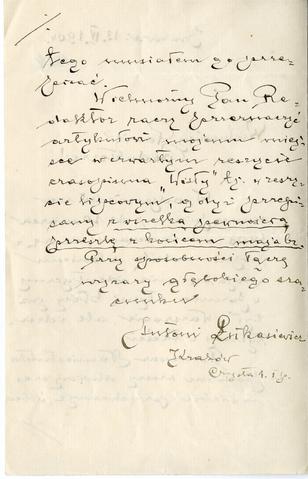 tego musiałem go przepisać.
Wielmożny Pan Redaktor raczy przeznaczyć
artykułowi mojemu miejsce w czwartym zeszycie
czasopisma „Wisły" tj. „zeszycie lipcowym", gdyż przepisany
z wszelką pewnością
prześlę z końcem maja br.
Przy sposobności łączę
wyrazy głębokiego szacunku
Antoni Łukasiewicz
Kraków
Czysta 4. I p.